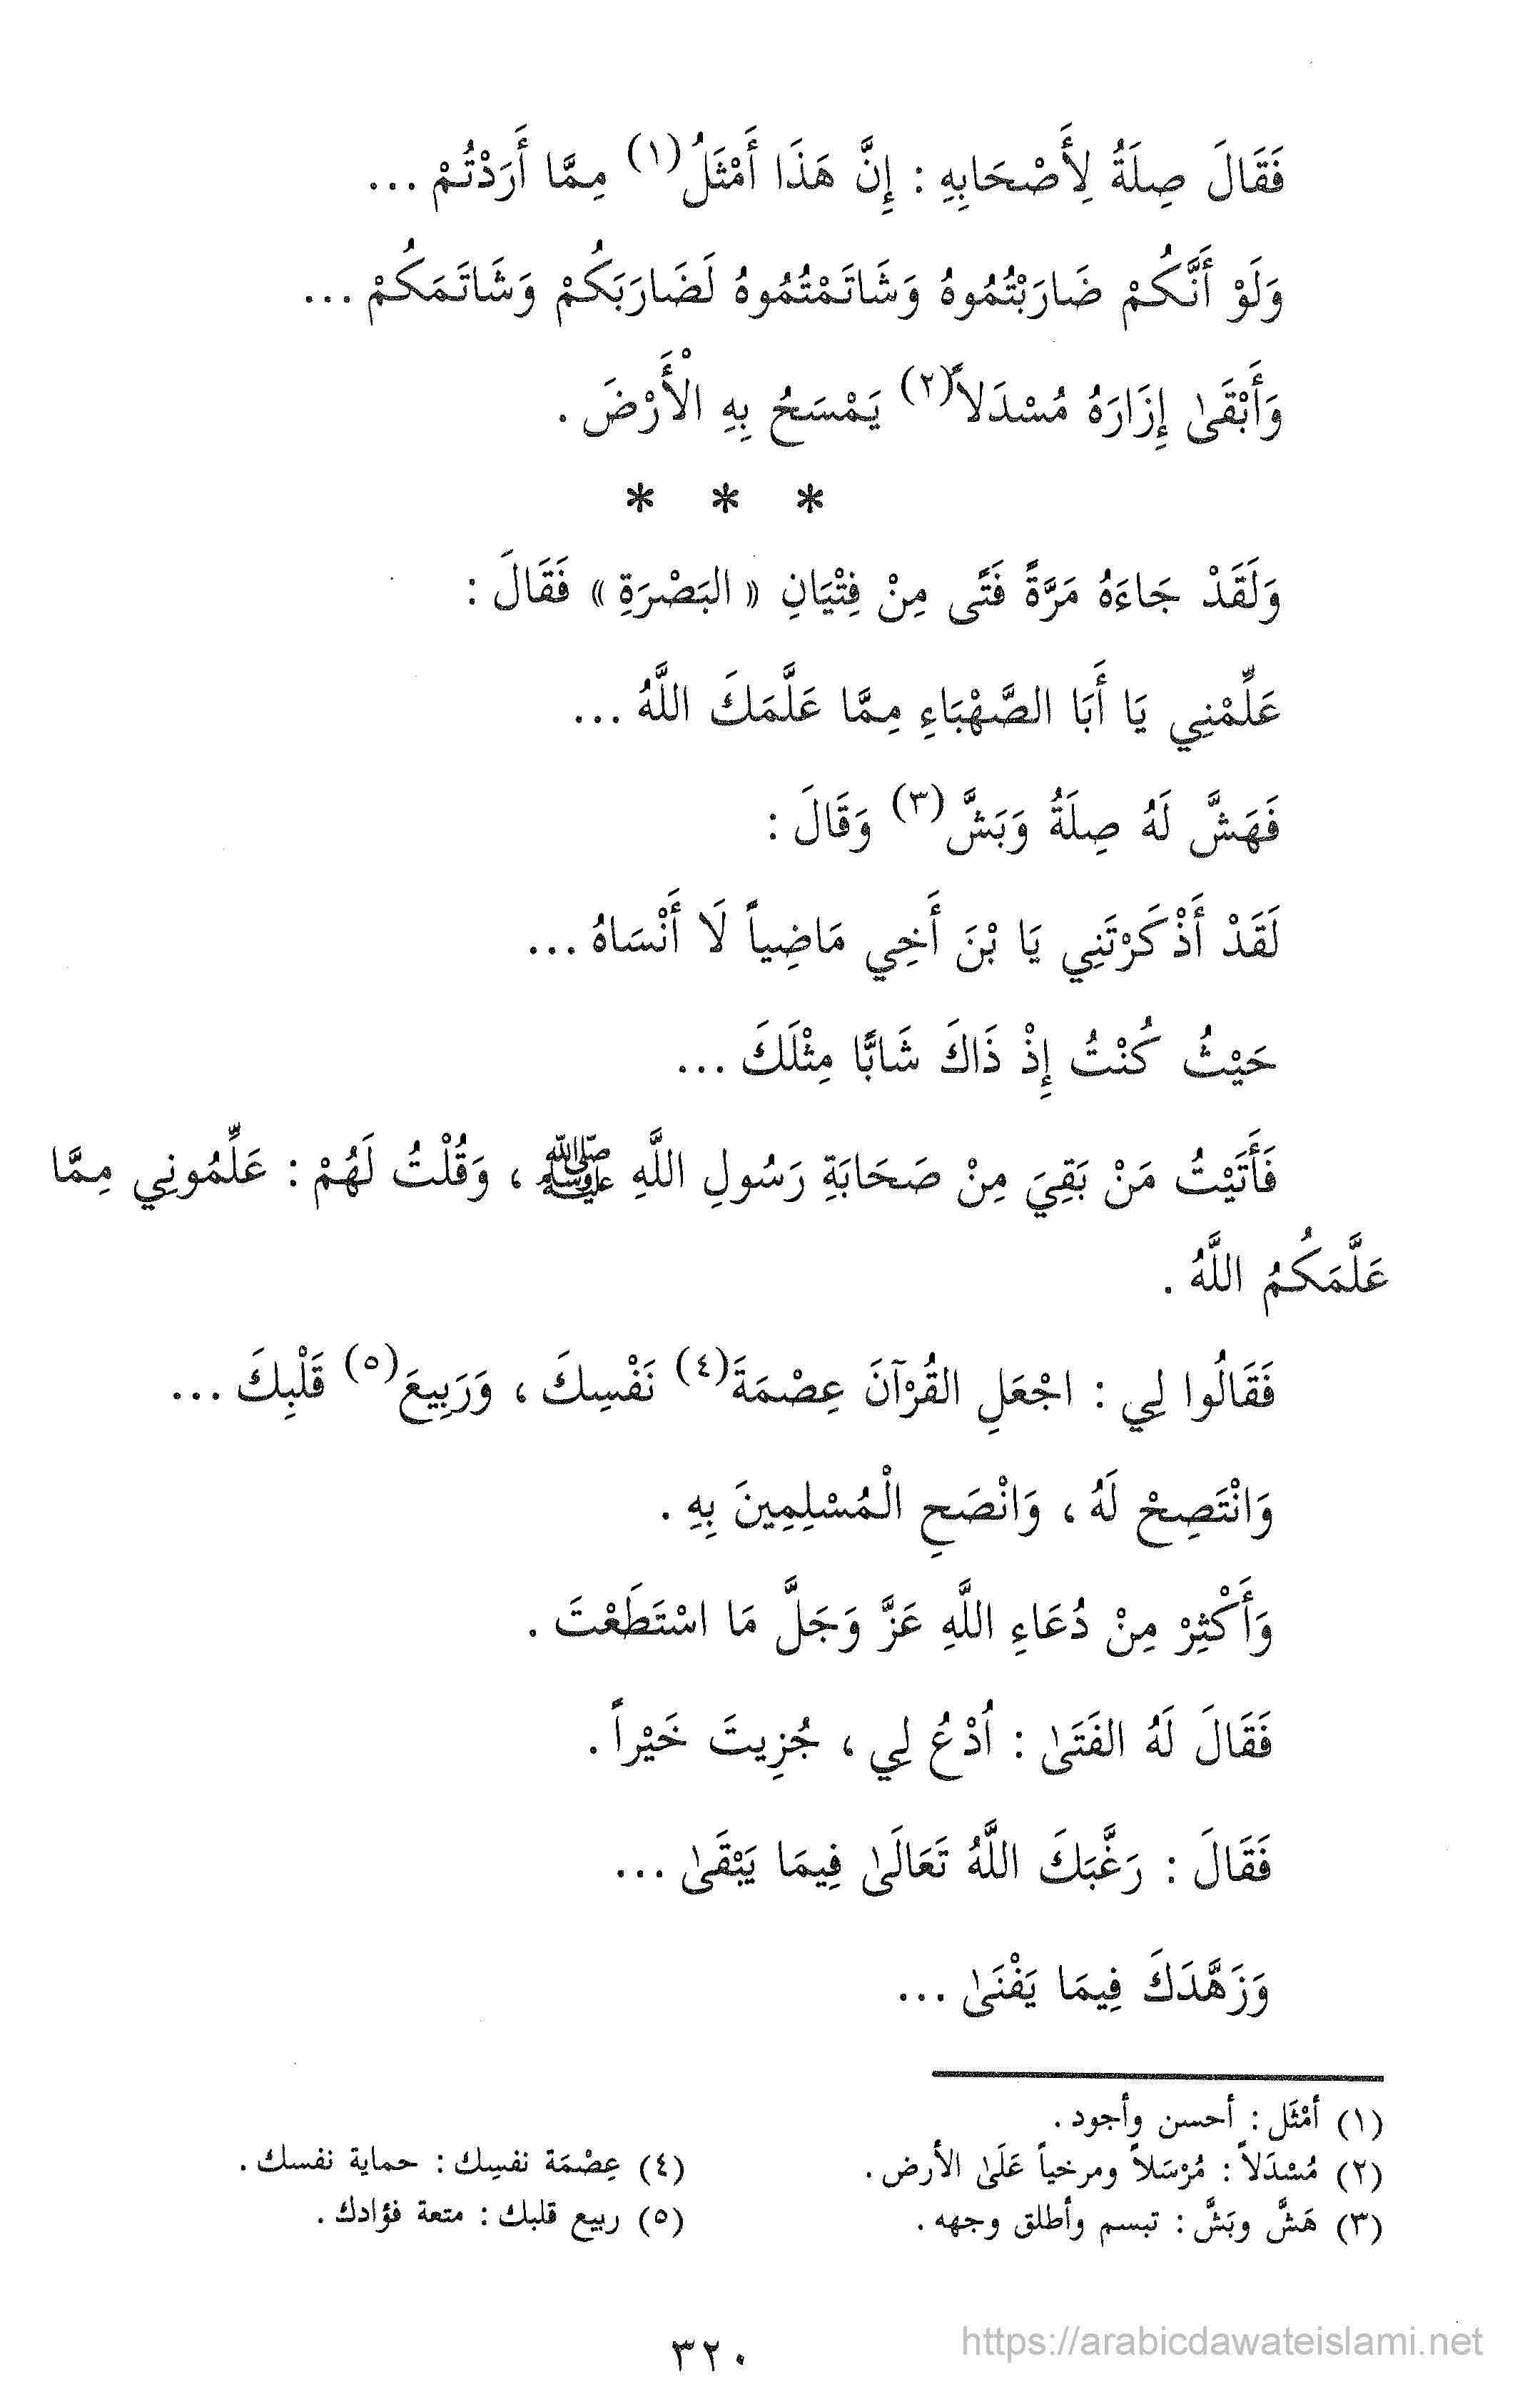 فَقَالَ صِلَةُ لِأَصْحَابِهِ : إِنَّ هَذَا أَمْثَلُ(١) مِمَّا أَرَدْتُمْ ...
وَلَوْ أَنَّكُمْ ضَارَبْتُمُوهُ وَشَاتَمْتُمُوهُ لَضَارَبَكُمْ وَشَاتَمَكُمْ ...
وَأَبْقَىٰ إِزَارَهُ مُسْدَلاً(٢) يَمْسَحُ بِهِ الْأَرْضَ .
* * *
وَلَقَدْ جَاءَهُ مَرَّةً فَتًى مِنْ فِتْيَانِ « البَصْرَةِ » فَقَالَ :
عَلِّمْنِي يَا أَبَا الصَّهْبَاءِ مِمَّا عَلَّمَكَ اللَّهُ ...
فَهَشَّ لَهُ صِلَةُ وَبَشَّ(٣) وَقَالَ :
لَقَدْ أَذْكَرْتَنِي يَا بْنَ أَخِي مَاضِياً لَا أَنْسَاهُ ...
حَيْثُ كُنْتُ إِذْ ذَاكَ شَابًّا مِثْلَكَ ...
فَأَتَيْتُ مَنْ بَقِيَ مِنْ صَحَابَةِ رَسُولِ اللَّهِ ﷺ ، وَقُلْتُ لَهُمْ : عَلِّمُونِي مِمَّا
عَلَّمَكُمُ اللَّهُ .
فَقَالُوا لِي : اجْعَلِ القُرْآنَ عِصْمَةَ(٤) نَفْسِكَ ، وَرَبِيعَ(٥) قَلْبِكَ ...
وَانْتَصِحْ لَهُ ، وَانْصَحِ الْمُسْلِمِينَ بِهِ .
وَأَكْثِرْ مِنْ دُعَاءِ اللَّهِ عَزَّ وَجَلَّ مَا اسْتَطَعْتَ .
فَقَالَ لَهُ الفَتَىٰ : اُدْعُ لِي ، جُزِيتَ خَيْراً .
فَقَالَ : رَغَّبَكَ اللَّهُ تَعَالَىٰ فِيمَا يَبْقَىٰ ...
وَزَهَّدَكَ فِيمَا يَفْنَىٰ ...
(١) أمْثَل : أحسن وأجود .
(٢) مُسْدَلاً : مُرْسَلاً ومرخياً عَلَىٰ الأرض .
(٣) هَشَّ وبَشَّ : تبسم وأطلق وجهه .
(٤) عِصْمَة نفسِك : حماية نفسك .
(٥) ربيع قلبك : متعة فؤادك .
٣٢٠
https://arabicdawateislami.net